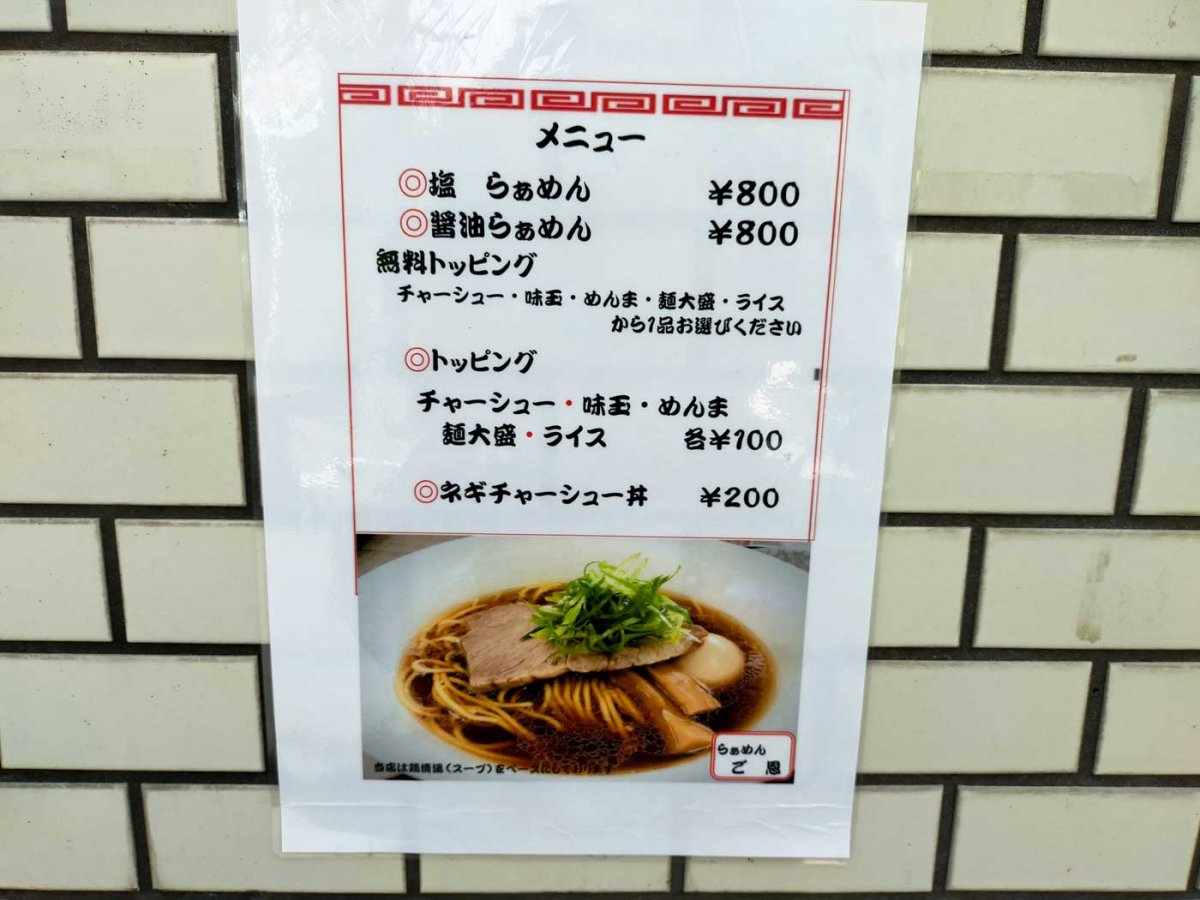 メニュー
◎塩 らぁめん ¥800
◎醤油らぁめん ¥800
無料トッピング
チャーシュー・味玉・めんま・麺大盛・ライス
から1品お選びください
◎トッピング
チャーシュー・味玉・めんま
麺大盛・ライス 各¥100
◎ネギチャーシュー丼 ¥200
当店は鶏清湯(スープ)をベースにしております
らぁめん
ご恩